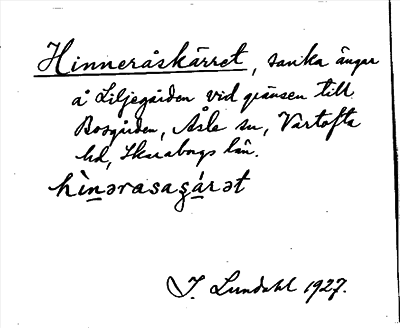 Hinneråskärret, sanka ängar
å Liljegården vid gränsen till
Bosgården, Åsle sn, Vartofta
hd, Skaraborgs län.
hìnərasaʂárət
J. Lundahl 1927.